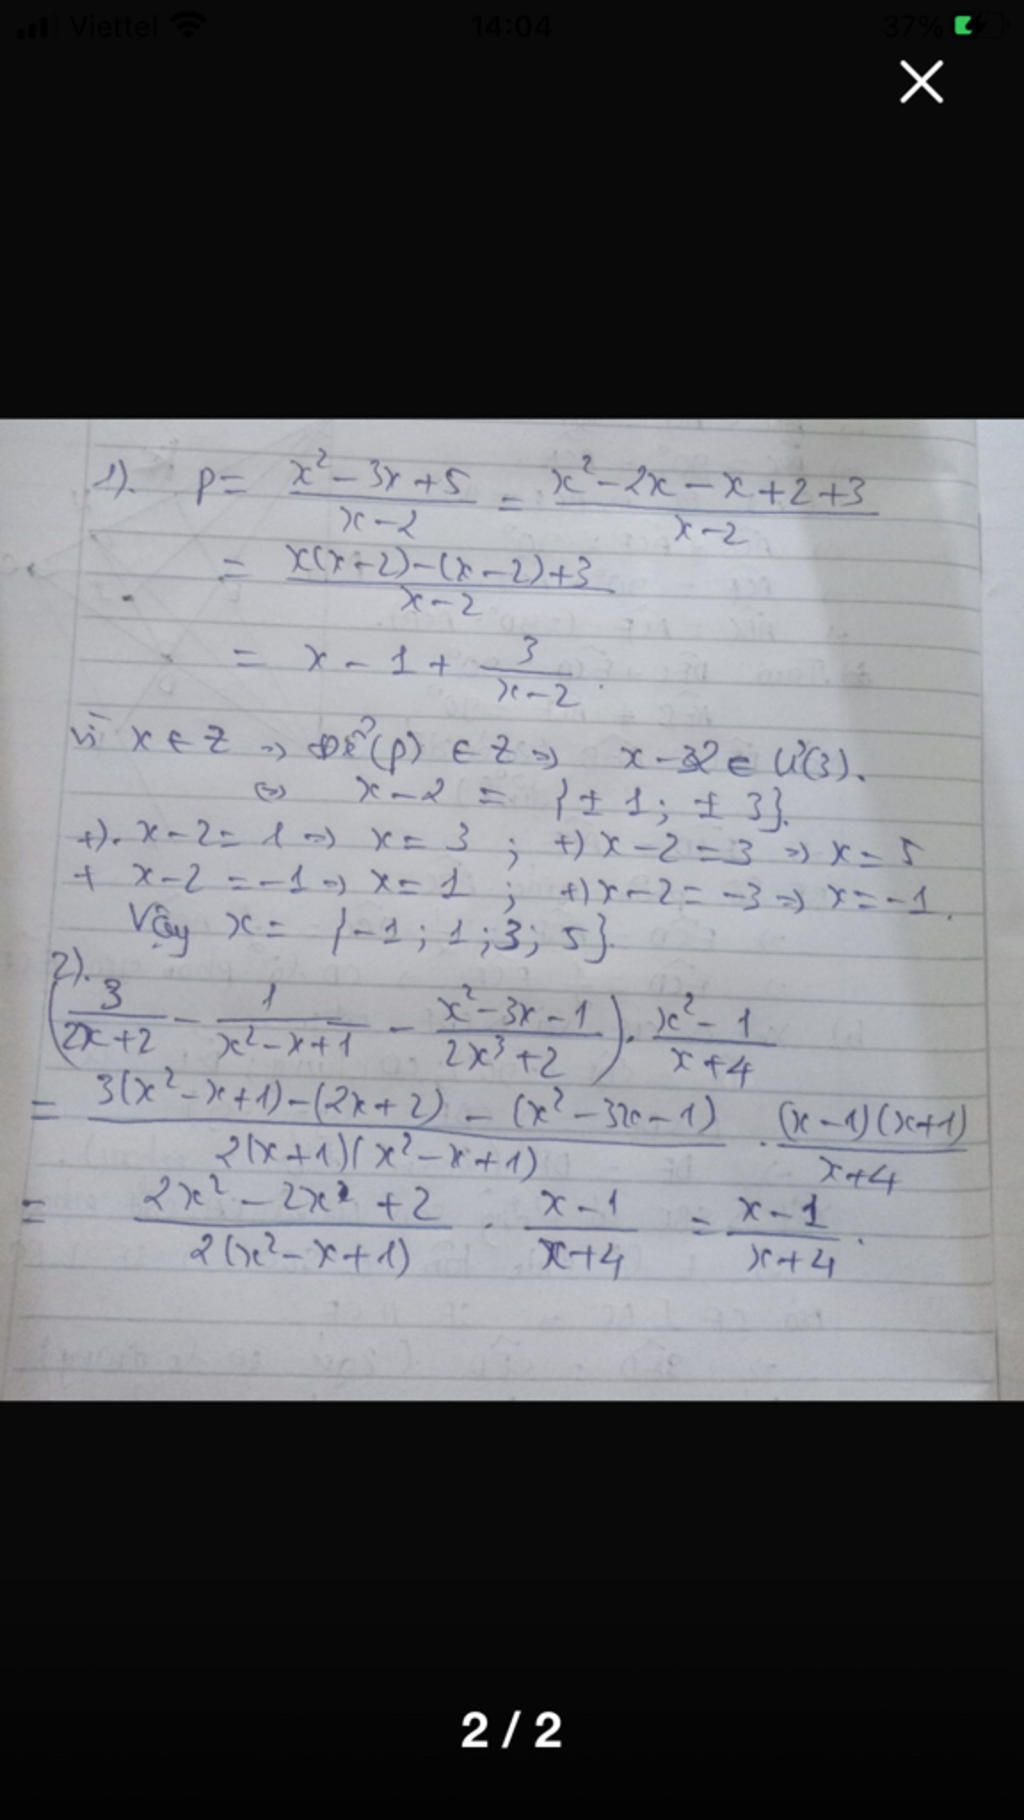 Viettel 14:04 37%
1). P = (x² - 3x + 5)/(x - 2) = (x² - 2x - x + 2 + 3)/(x - 2)
= (x(x - 2) - (x - 2) + 3)/(x - 2)
= x - 1 + 3/(x - 2).
Vì x ∈ Z => Để (P) ∈ Z => x - 2 ∈ Ư(3).
<=> x - 2 = {± 1; ± 3}.
+). x - 2 = 1 => x = 3 ; +) x - 2 = 3 => x = 5
+ x - 2 = -1 => x = 1 ; +) x - 2 = -3 => x = -1.
Vậy x = {-1; 1; 3; 5}.
2).
(3/(2x + 2) - 1/(x² - x + 1) - (x² - 3x - 1)/(2x³ + 2)) . (x² - 1)/(x + 4)
= (3(x² - x + 1) - (2x + 2) - (x² - 3x - 1))/(2(x + 1)(x² - x + 1)) . ((x - 1)(x + 1))/(x + 4)
= (2x² - 2x² + 2)/(2(x² - x + 1)) . (x - 1)/(x + 4) = (x - 1)/(x + 4).
2 / 2